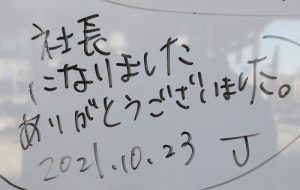 社長
になりました
ありがとうございました。
2021.10.23 J